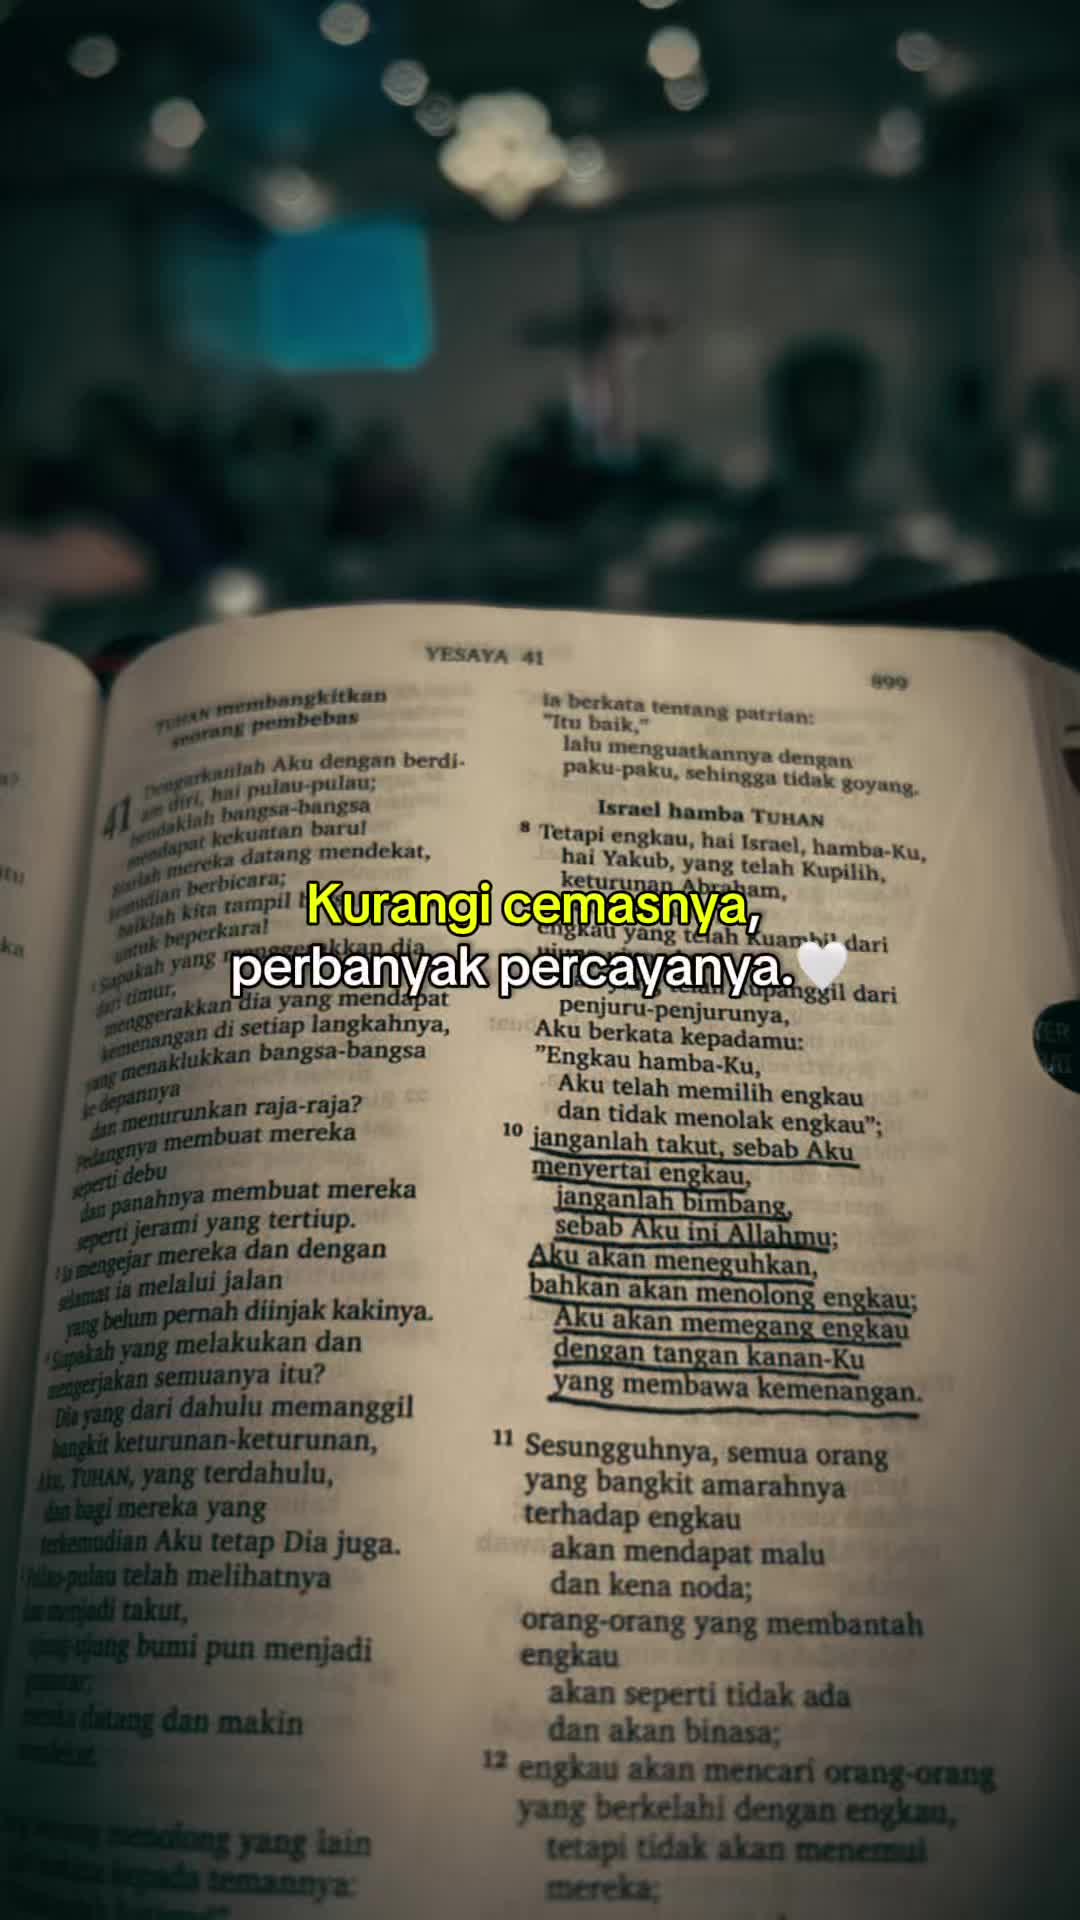 YESAYA 41
899
TUHAN membangkitkan
seorang pembebas
41 Dengarkanlah Aku dengan berdi-
am diri, hai pulau-pulau;
hendaklah bangsa-bangsa
mendapat kekuatan baru!
Biarlah mereka datang mendekat,
kemudian berbicara;
baiklah kita tampil
untuk beperkara!
Siapakah yang menggerakkan dia
dari timur,
menggerakkan dia yang mendapat
kemenangan di setiap langkahnya,
yang menaklukkan bangsa-bangsa
ke depannya
dan menurunkan raja-raja?
Pedangnya membuat mereka
seperti debu
dan panahnya membuat mereka
seperti jerami yang tertiup.
3 Ia mengejar mereka dan dengan
selamat ia melalui jalan
yang belum pernah diinjak kakinya.
4 Siapakah yang melakukan dan
mengerjakan semuanya itu?
Dia yang dari dahulu memanggil
bangkit keturunan-keturunan,
Aku, TUHAN, yang terdahulu,
dan bagi mereka yang
terkemudian Aku tetap Dia juga.
pulau-pulau telah melihatnya
dan menjadi takut,
ujung-ujung bumi pun menjadi
datang dan makin
menolong yang lain
temannya:
ia berkata tentang patrian:
"Itu baik,"
lalu menguatkannya dengan
paku-paku, sehingga tidak goyang.
Israel hamba TUHAN
8 Tetapi engkau, hai Israel, hamba-Ku,
hai Yakub, yang telah Kupilih,
keturunan Abraham,
Kurangi cemasnya,
engkau yang telah Kuambil dari
perbanyak percayanya.🤍
Kupanggil dari
penjuru-penjurunya,
Aku berkata kepadamu:
"Engkau hamba-Ku,
Aku telah memilih engkau
dan tidak menolak engkau";
10 janganlah takut, sebab Aku
menyertai engkau,
janganlah bimbang,
sebab Aku ini Allahmu;
Aku akan meneguhkan,
bahkan akan menolong engkau;
Aku akan memegang engkau
dengan tangan kanan-Ku
yang membawa kemenangan.
11 Sesungguhnya, semua orang
yang bangkit amarahnya
terhadap engkau
akan mendapat malu
dan kena noda;
orang-orang yang membantah
engkau
akan seperti tidak ada
dan akan binasa;
12 engkau akan mencari orang-orang
yang berkelahi dengan engkau,
tetapi tidak akan menemui
mereka;